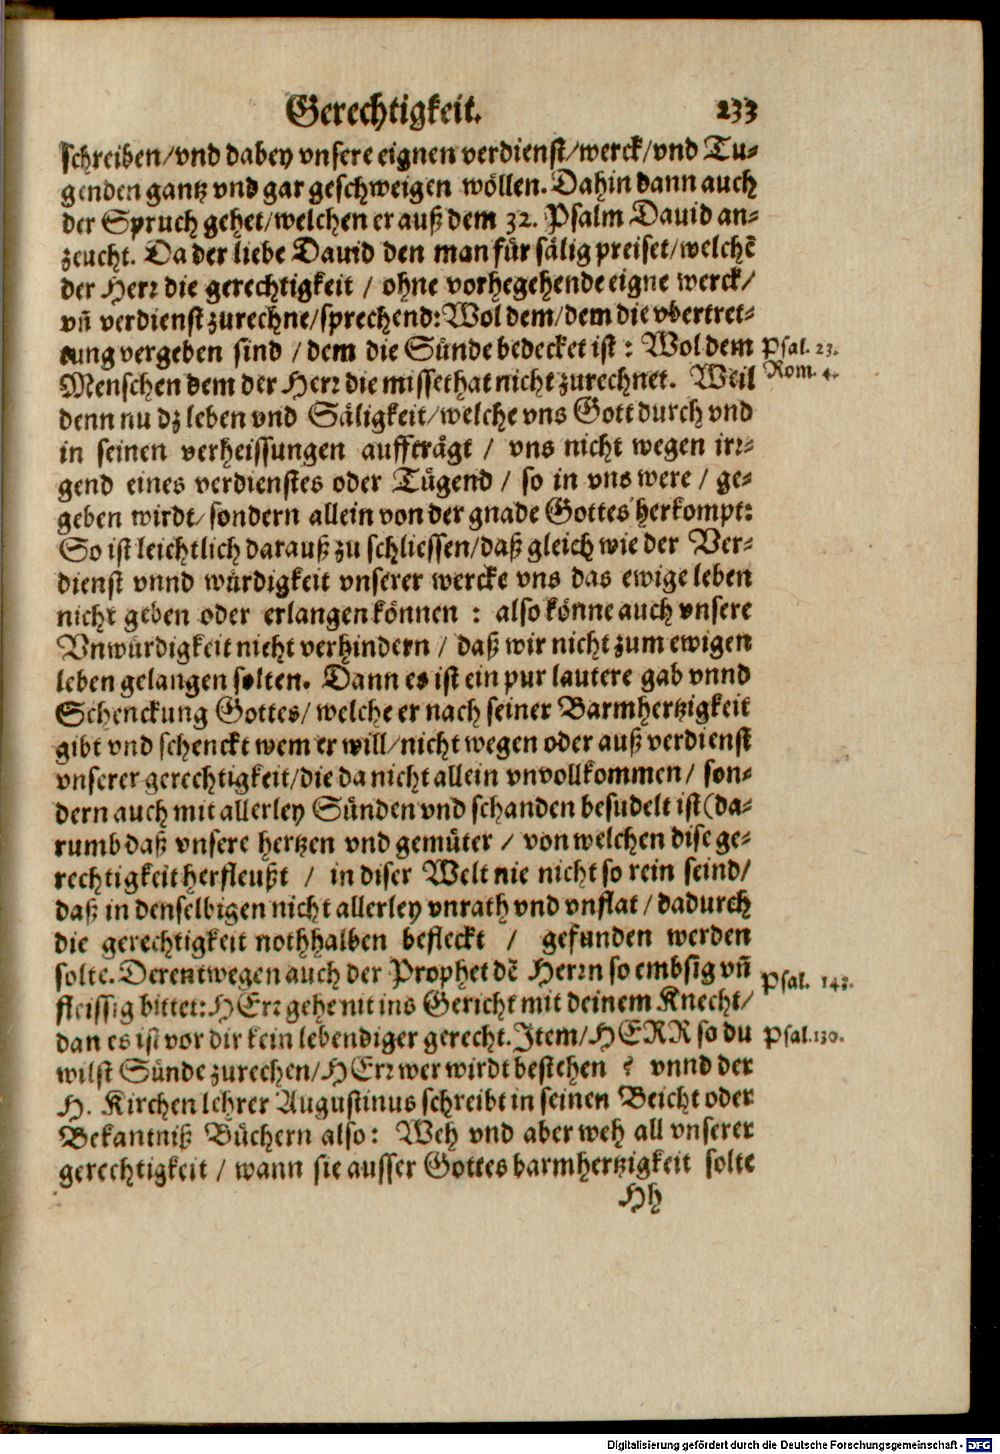 Gerechtigkeit. 233
schreiben/vnd dabey vnsere eignen verdienst/werck/vnd Tu-
genden gantz vnd gar geschweigen wöllen. Dahin dann auch
der Spruch gehet/welchen er auß dem 32. Psalm Dauid an-
zeucht. Da der liebe Dauid den man für sälig preiset/welchē
der Herr die gerechtigkeit / ohne vorhegehende eigne werck/
vn̄ verdienst zurechne/sprechend: Wol dem/dem die vbertret-
tung vergeben sind / dem die Sünde bedecket ist : Wol dem
Psal. 23.
Menschen dem der Herr die missethat nicht zurechnet. Weil
Rom. 4.
denn nu dz leben vnd Säligkeit/welche vns Gott durch vnd
in seinen verheissungen aufftrågt / vns nicht wegen irr-
gend eines verdienstes oder Tügend / so in vns were / ge-
geben wirdt/sondern allein von der gnade Gottes herkompt:
So ist leichtlich darauß zu schliessen/daß gleich wie der Ver-
dienst vnnd würdigkeit vnserer wercke vns das ewige leben
nicht geben oder erlangen können : also könne auch vnsere
Vnwürdigkeit nicht verhindern / daß wir nicht zum ewigen
leben gelangen solten. Dann es ist ein pur lautere gab vnnd
Schenckung Gottes/ welche er nach seiner Barmhertzigkeit
gibt vnd schenckt wem er will/nicht wegen oder auß verdienst
vnserer gerechtigkeit/die da nicht allein vnvollkommen/ son-
dern auch mit allerley Sünden vnd schanden besudelt ist (da-
rumb daß vnsere hertzen vnd gemüter / von welchen dise ge-
rechtigkeit herfleußt / in diser Welt nie nicht so rein seind/
daß in denselbigen nicht allerley vnrath vnd vnflat / dadurch
die gerechtigkeit nothhalben befleckt / gefunden werden
solte. Derentwegen auch der Prophet dē Herrn so embsig vn̄
Psal. 143.
fleissig bittet: HErr gehe nit ins Gericht mit deinem Knecht/
dan es ist vor dir kein lebendiger gerecht. Item/HERR so du
Psal. 130.
wilst Sünde zurechen/HErr wer wirdt bestehen ? vnnd der
H. Kirchen lehrer Augustinus schreibt in seinen Beicht oder
Bekantniß Büchern also: Weh vnd aber weh all vnserer
gerechtigkeit / wann sie ausser Gottes barmhertzigkeit solte
Hh
Digitalisierung gefördert durch die Deutsche Forschungsgemeinschaft - DFG